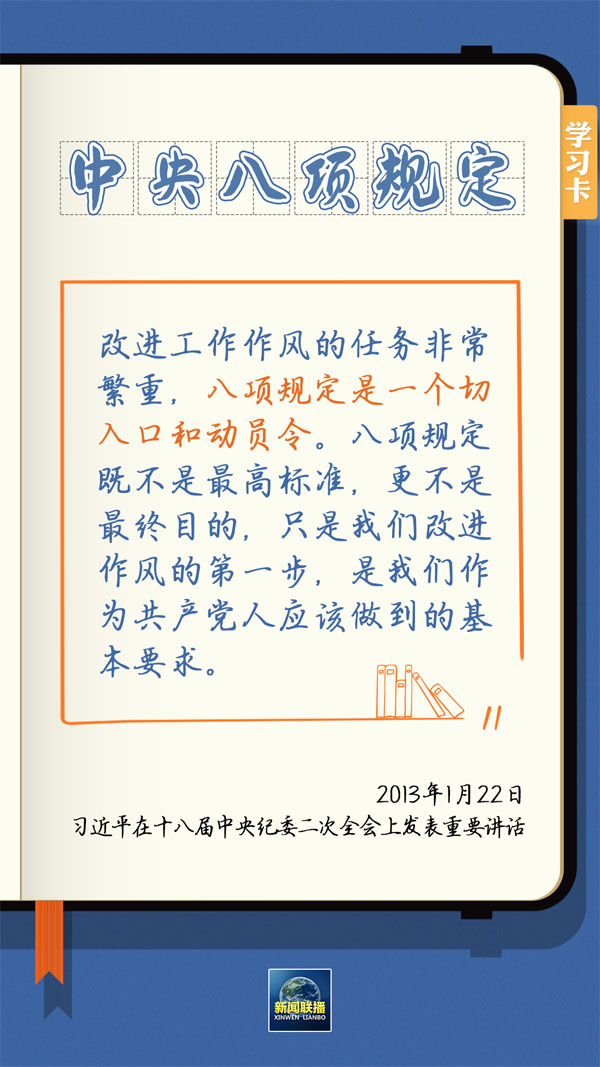 学习卡
中央八项规定
改进工作作风的任务非常
繁重，八项规定是一个切
入口和动员令。八项规定
既不是最高标准，更不是
最终目的，只是我们改进
作风的第一步，是我们作
为共产党人应该做到的基
本要求。
2013年1月22日
习近平在十八届中央纪委二次全会上发表重要讲话
新闻联播
XINWEN LIANBO